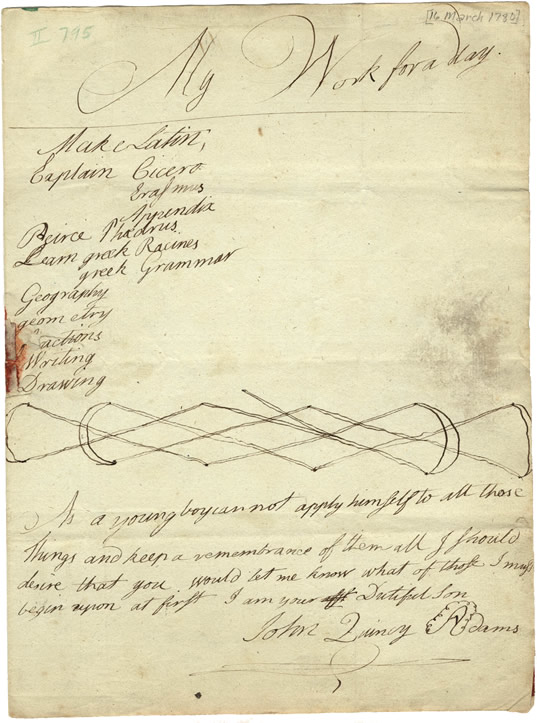 II 795
[16 March 1780]
My Work for a day.
Make Latin,
Explain Cicero
Erasmus
Appendix
Peirce Phædrus
Learn greek Racines
greek Grammar
Geography
geometry
fractions
Writing
Drawing
As a young boy cannot apply himself to all those
Things and keep a remembrance of them all I should
desire that you would let me know what of those I must
begin upon at first I am your Dutiful Son
John Quincy Adams